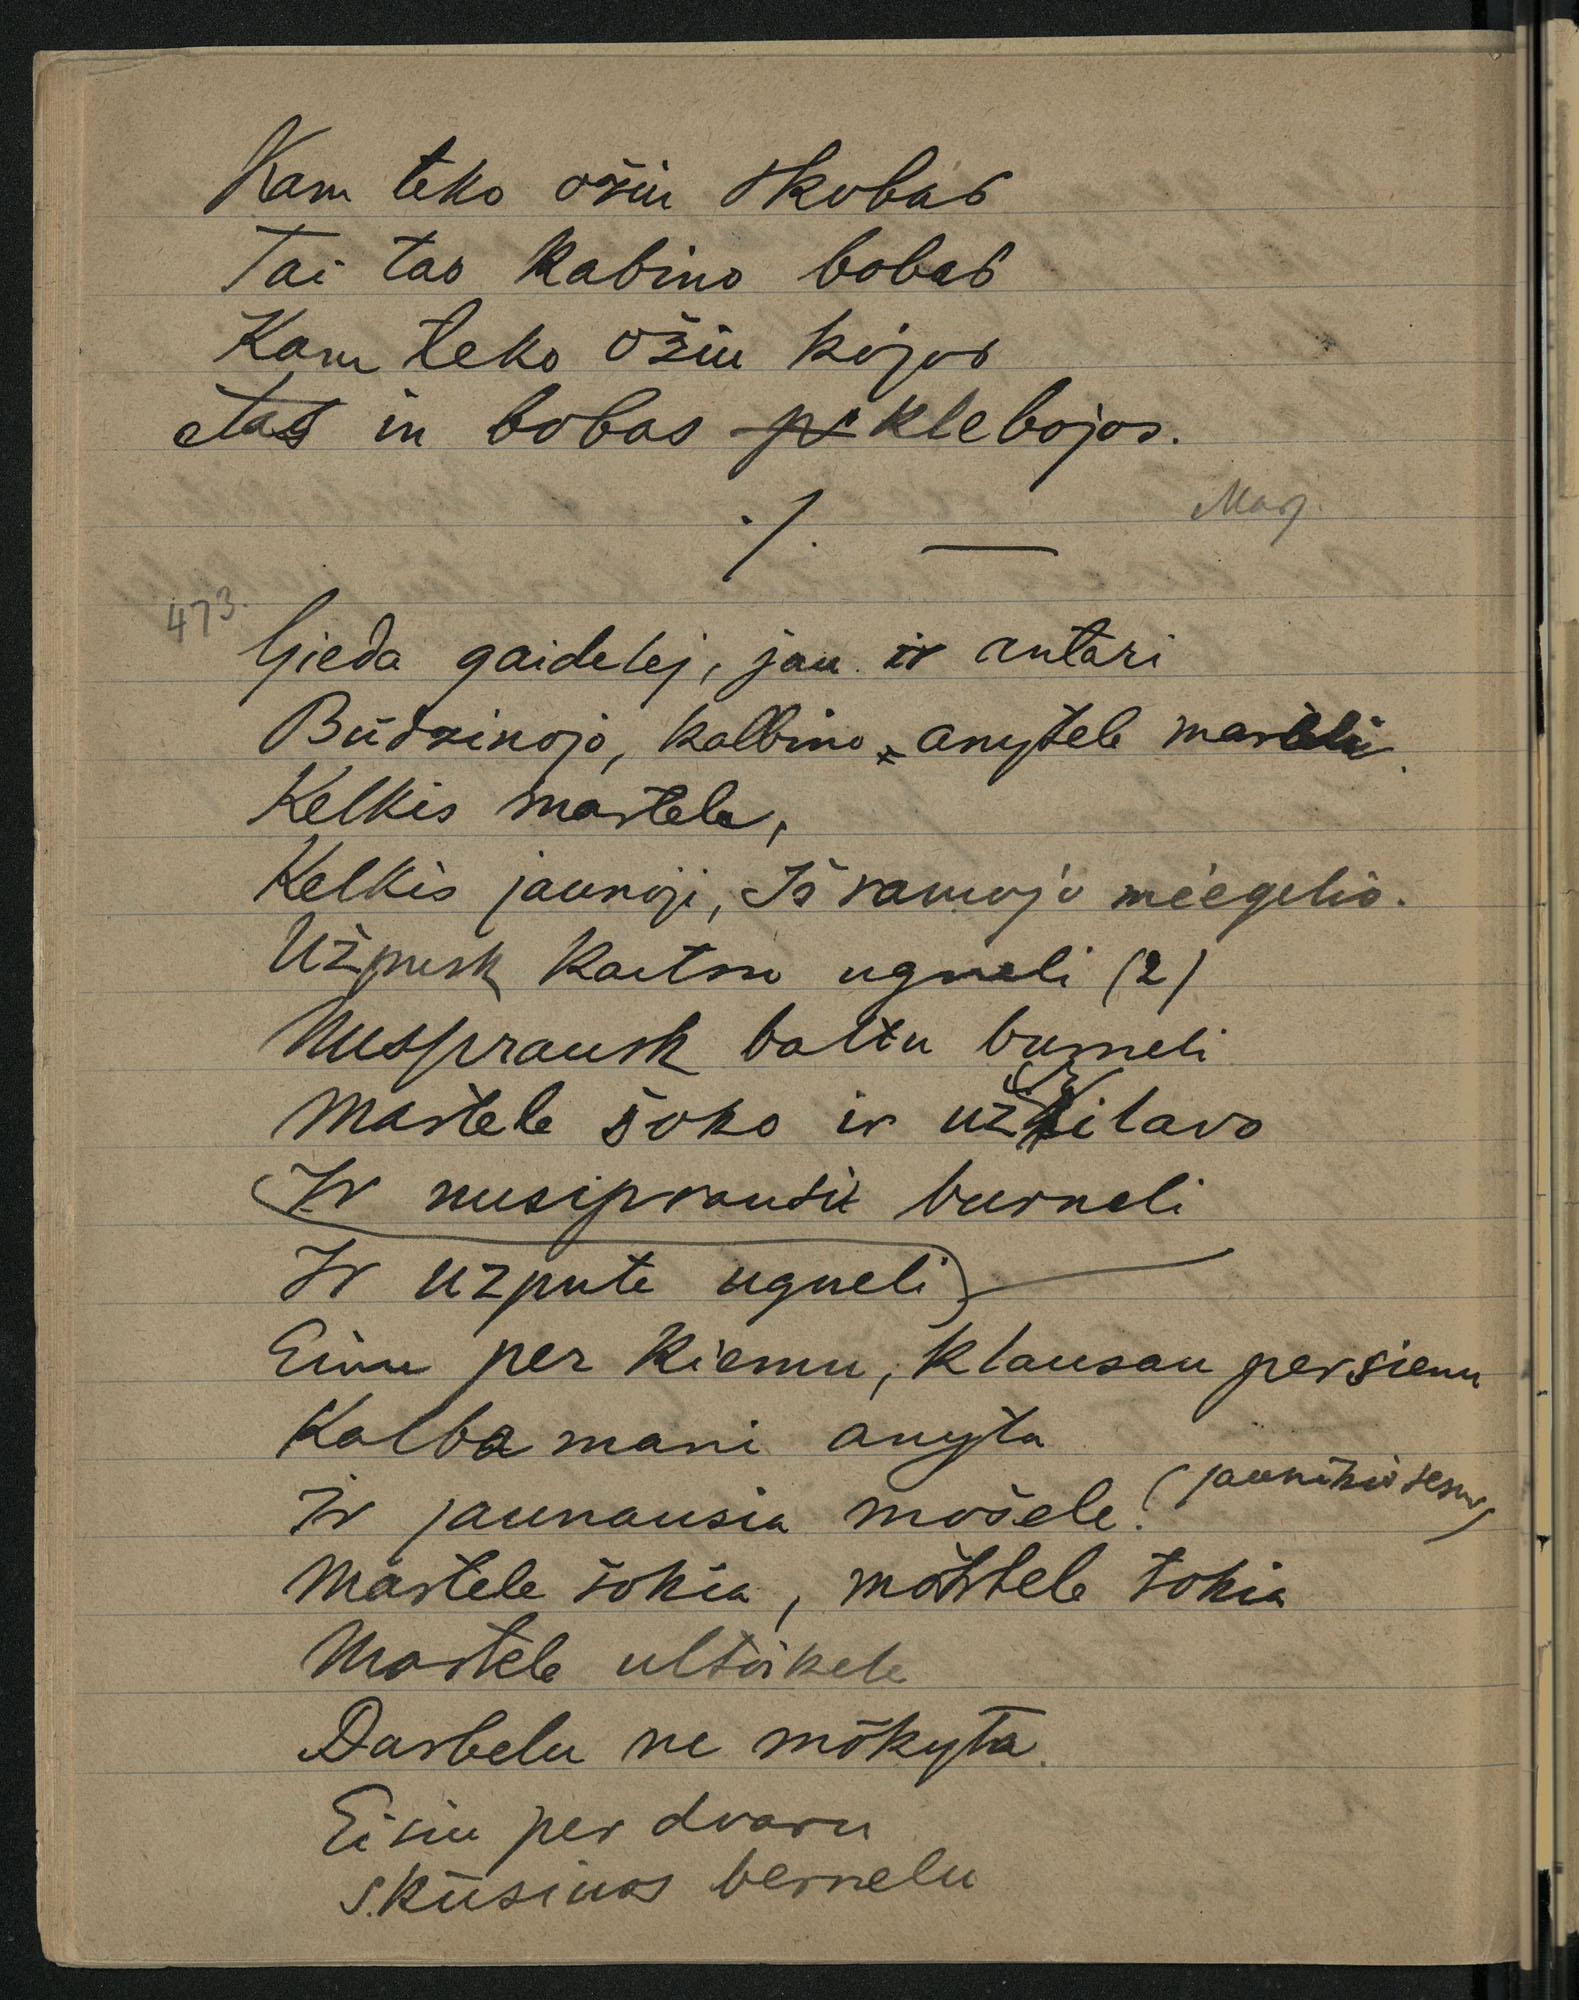 Kam teko ožiu skobas
Tai tas kabino bobas
Kam teko ožiu kojos
Tas in bobas klebojos.
./. —
473.
Gieda gaidelej, jau ir antàri
Būdzinojo, kalbino anytele martele
Kelkis martele,
Kelkis jaunoji, Iš ramojo mėegelio.
Užpusk kaitru ugneli (2)
Nusprausk baltu burneli
Martele šoko ir užkilavo
Ir nusiprausu burneli
Ir uzpute ugneli
Einu per kiemu, klausau per sienu
Kalba mani anyta
Ir jaunausia mošele. (jaunikio sesuo)
Martele tokia, mortele tokia
Martele ultoikele
Darbelu ne mōkyta.
Eisiu per dvaru
Skūsiuos bernelu